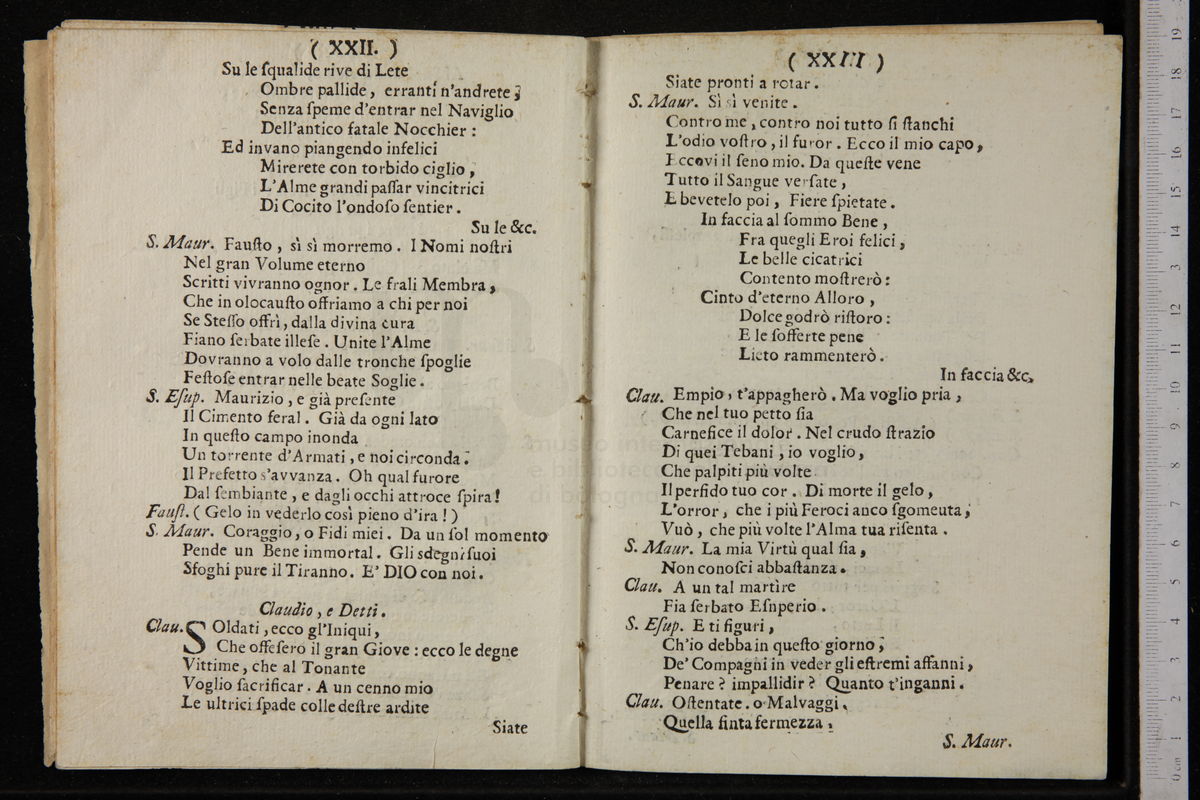 ( XXII. )
Su le ſqualide rive di Lete
Ombre pallide, erranti n'andrete;
Senza ſpeme d'entrar nel Naviglio
Dell'antico fatale Nocchier :
Ed invano piangendo infelici
Mirerete con torbido ciglio,
L'Alme grandi paſſar vincitrici
Di Cocito l'ondoſo ſentier.
Su le &c.
S. Maur. Fauſto, sì sì morremo. I Nomi noſtri
Nel gran Volume eterno
Scritti vivranno ognor. Le frali Membra,
Che in olocauſto offriamo a chi per noi
Se Steſſo offrì, dalla divina cura
Fiano ſerbate illeſe. Unite l'Alme
Dovranno a volo dalle tronche ſpoglie
Feſtoſe entrar nelle beate Soglie.
S. Eſup. Maurizio, e già preſente
Il Cimento feral. Già da ogni lato
In queſto campo inonda
Un torrente d'Armati, e noi circonda.
Il Prefetto s'avvanza. Oh qual furore
Dal ſembiante, e dagli occhi attroce ſpira!
Fauſt. ( Gelo in vederlo così pieno d'ira! )
S. Maur. Coraggio, o Fidi miei. Da un ſol momento
Pende un Bene immortal. Gli sdegni ſuoi
Sfoghi pure il Tiranno. E' DIO con noi.
Claudio, e Detti.
Clau. SOldati, ecco gl'Iniqui,
Che offeſero il gran Giove : ecco le degne
Vittime, che al Tonante
Voglio ſacrificar. A un cenno mio
Le ultrici ſpade colle deſtre ardite
Siate
( XXIII )
Siate pronti a rotar.
S. Maur. Sì sì venite.
Contro me, contro noi tutto ſi ſtanchi
L'odio voſtro, il furor. Ecco il mio capo,
Eccovi il ſeno mio. Da queſte vene
Tutto il Sangue verſate,
E bevetelo poi, Fiere ſpietate.
In faccia al ſommo Bene,
Fra quegli Eroi felici,
Le belle cicatrici
Contento moſtrerò :
Cinto d'eterno Alloro,
Dolce godrò riſtoro :
E le ſofferte pene
Lieto rammenterò.
In faccia &c.
Clau. Empio, t'appagherò. Ma voglio pria,
Che nel tuo petto ſia
Carnefice il dolor. Nel crudo ſtrazio
Di quei Tebani, io voglio,
Che palpiti più volte
Il perfido tuo cor. Di morte il gelo,
L'orror, che i più Feroci anco ſgomeuta,
Vuò, che più volte l'Alma tua riſenta.
S. Maur. La mia Virtù qual ſia,
Non conoſci abbaſtanza.
Clau. A un tal martìre
Fia ſerbato Eſuperio.
S. Eſup. E ti figuri,
Ch'io debba in queſto giorno,
De' Compagni in veder gli eſtremi affanni,
Penare? impallidir? Quanto t'inganni.
Clau. Oſtentate. o Malvaggi,
Quella finta fermezza,
S. Maur.
museo inte
e biblioteca
di bologna
0 cm 1 2 3 4 5 6 7 8 9 10 11 12 13 14 15 16 17 18 19